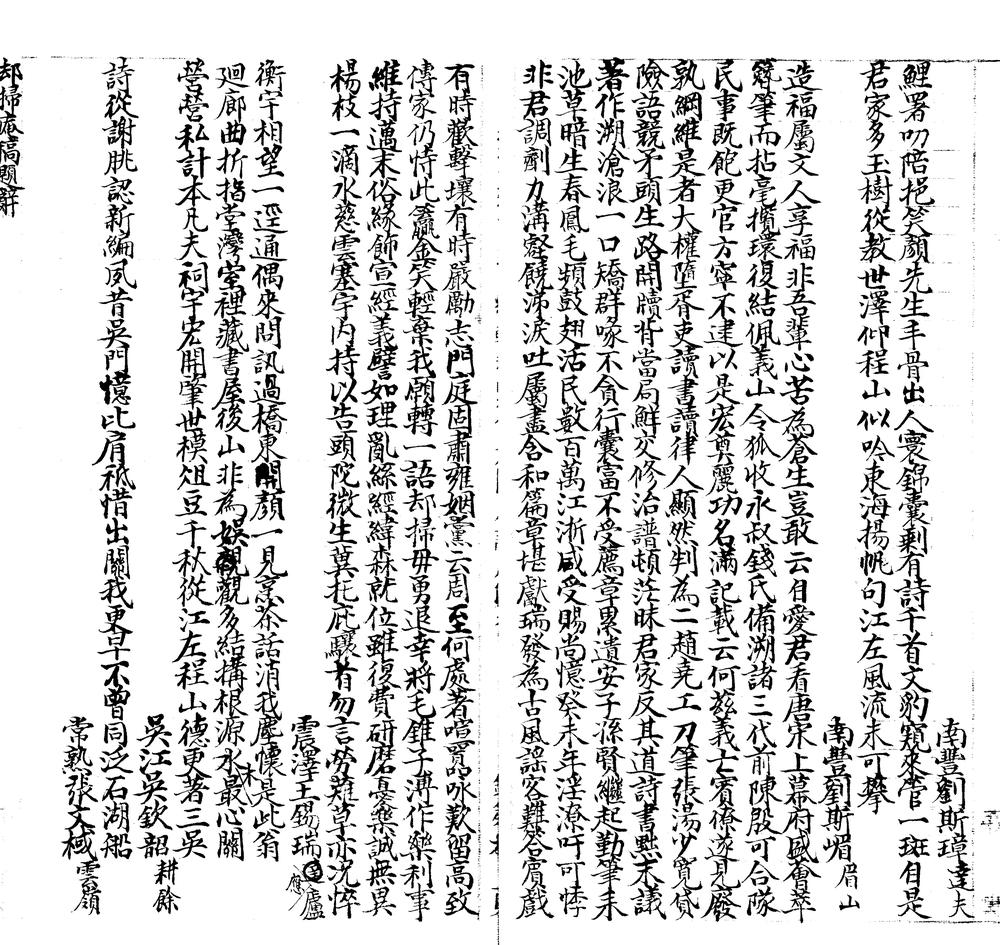 南豐劉斯瑋達夫
鯉署叨陪挹笑顏先生手骨出人寰錦囊剩有詩千首文豹窺來管一斑自是
君家多玉樹從教世澤仰程山似吟東海揚帆句江左風流未可攀
南豐劉斯嵋眉山
造福屬文人享福非吾輩心苦為蒼生豈敢云自愛君看唐宋上幕府盛會萃
簪筆而拈毫攬環復結佩義山令狐收永叔錢氏備溯諸三代前陳殷可合隊
民事既飽更官方寧不逮以是宏奠麗功名滿記載云何茲義亡賓僚遂見廢
孰綱維是者大權墮胥吏讀書讀律人顯然判為二趙堯工刀筆張湯少寬貸
險語競矛頭生路開牘背當局鮮交修治譜頓茫昧君家反其道詩書黜末議
著作溯滄浪一口矯群喙不貪行囊富不受薦章累遺安子孫賢繼起勤筆耒
池草暗生春鳳毛頻鼓翅活民數百萬江浙咸受賜尚憶癸未年淫潦吁可悸
非君調劑力溝壑饒涕淚吐屬盡含和篇章堪獻瑞發為古風謠客難答賓戲
有時歡擊壤有時嚴勵志門庭固肅雍姻黨云周至何處著喧囂咏歎留高致
傳家仍恃此籯金笑輕棄我願轉一語却掃毋勇退幸將毛錐子溥作樂利事
維持邁末俗緣飾宣經義譬如理亂絲經緯森就位雖復費研磨憂樂誠無異
楊枝一滴水慈雲塞宇內持以告頭陀微生冀托庇驤首勿言勞薙草亦況悴
震澤王錫瑞
衡宇相望一逕通偶來問訊過橋東開顏一見烹茶話消我塵懷是此翁
迴廊曲折指堂灣堂裡藏書屋後山非為娛觀多結構根源水木最心關
營營私計本凡夫祠宇宏開肇世模俎豆千秋從江左程山德更著三吳
吳江吳欽韶耕餘
詩從謝朓認新編夙昔吳門憶比肩祗惜出關我更早不曾同泛石湖船
常熟張文棫雲嶺
却掃庵稿題辭